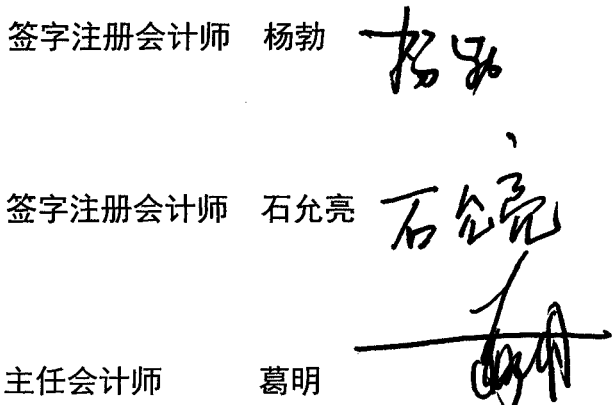 签字注册会计师 杨勃 杨勃
签字注册会计师 石允亮 石允亮
主任会计师 葛明 葛明